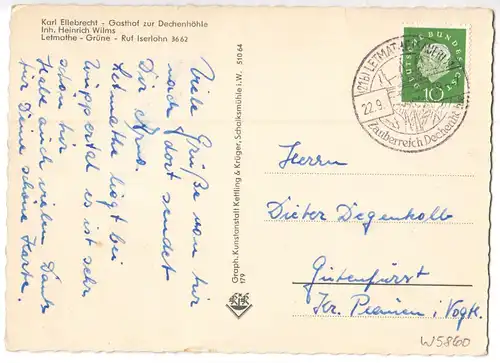 Karl Ellebrecht - Gasthof zur Dechenhöhle
Inh. Heinrich Wilms
Letmathe - Grüne - Ruf Iserlohn 3662
Viele Grüße von hir
nach dort sendet
Dir
Letmathe liegt bei
Wuppertal es ist sehr
schön hir
Habe auch vielen Dank
für Deine schöne Karte.
Graph. Kunstanstalt Kettling & Krüger, Schalksmühle i.W. 51064
179
KrK
DEUTSCHE BUNDESPOST
10
(21b) LETMATHE
22.9.
Zauberreich Dechenhöhle
Herrn
Dieter Degenkolb
Gutenfürst
Kr. Plauen i. Vogtl.
W5860